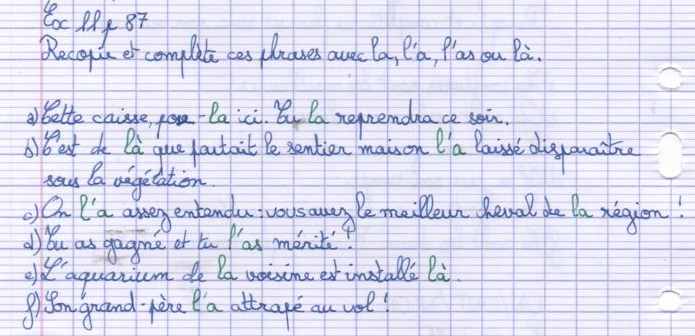 Ex 11 p 87
Recopie et complète ces phrases avec la, l'a, l'as ou là.
a) Cette caisse, pose-la ici. Tu la reprendra ce soir.
b) C'est de là que partait le sentier mais on l'a laissé disparaître
sous la végétation.
c) On l'a assez entendu : vous avez le meilleur cheval de la région !
d) Tu as gagné et tu l'as mérité !
e) L'aquarium de la voisine est installé là.
f) Son grand-père l'a attrapé au vol !